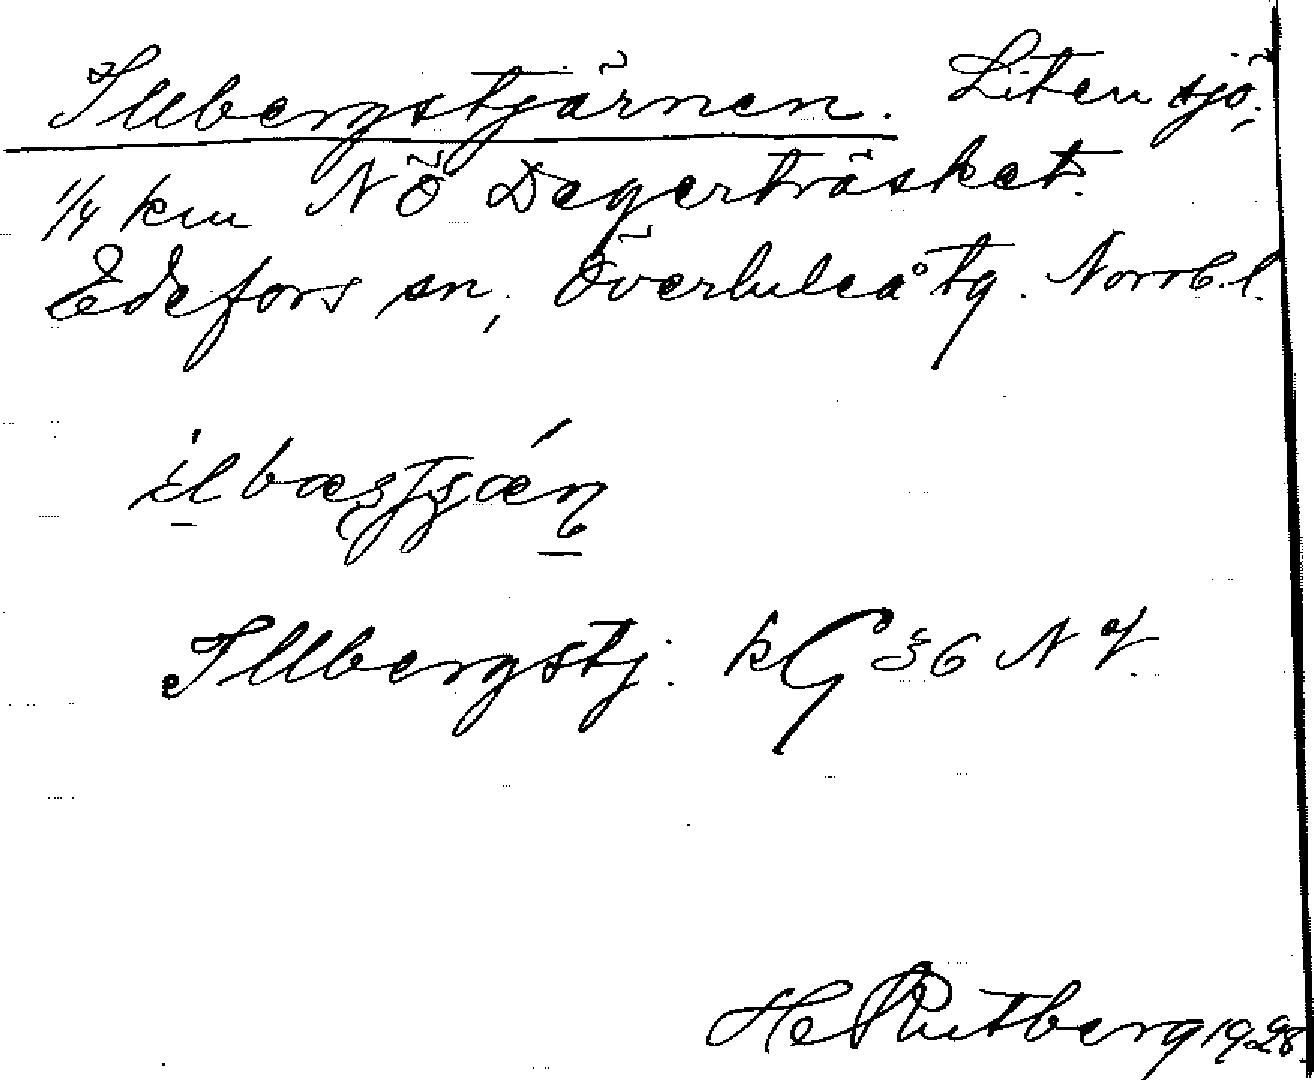 Illbergstjärnen. Liten sjö.
1/4 km NÖ Degerträsket.
Edefors sn, Överluleå tg. Norrb. l.
Illbergstj. kG 36 NV.
H Rutberg 1928